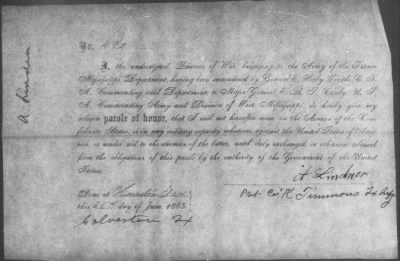 A Lindner
No. 480
I, the undersigned, Prisoner of War, belonging to the Army of the Trans
Mississippi Department, having been surrendered by General E. Kirby Smith, C. S.
A., Commanding said Department, to Major General E. R. S. Canby, U. S.
A., Commanding Army and Division of West Mississippi, do hereby give my
solemn parole of honor, that I will not hereafter serve in the Armies of the Con-
federate States, or in any military capacity whatever, against the United States of Amer-
ica, or render aid to the enemies of the latter, until duly exchanged, or otherwise released
from the obligations of this parole by the authority of the Government of the United
States.
A Lindner
Pvt Co K Timmons Tx Regt
Done at Houston Texas
this day of June 1865
Galveston Tx